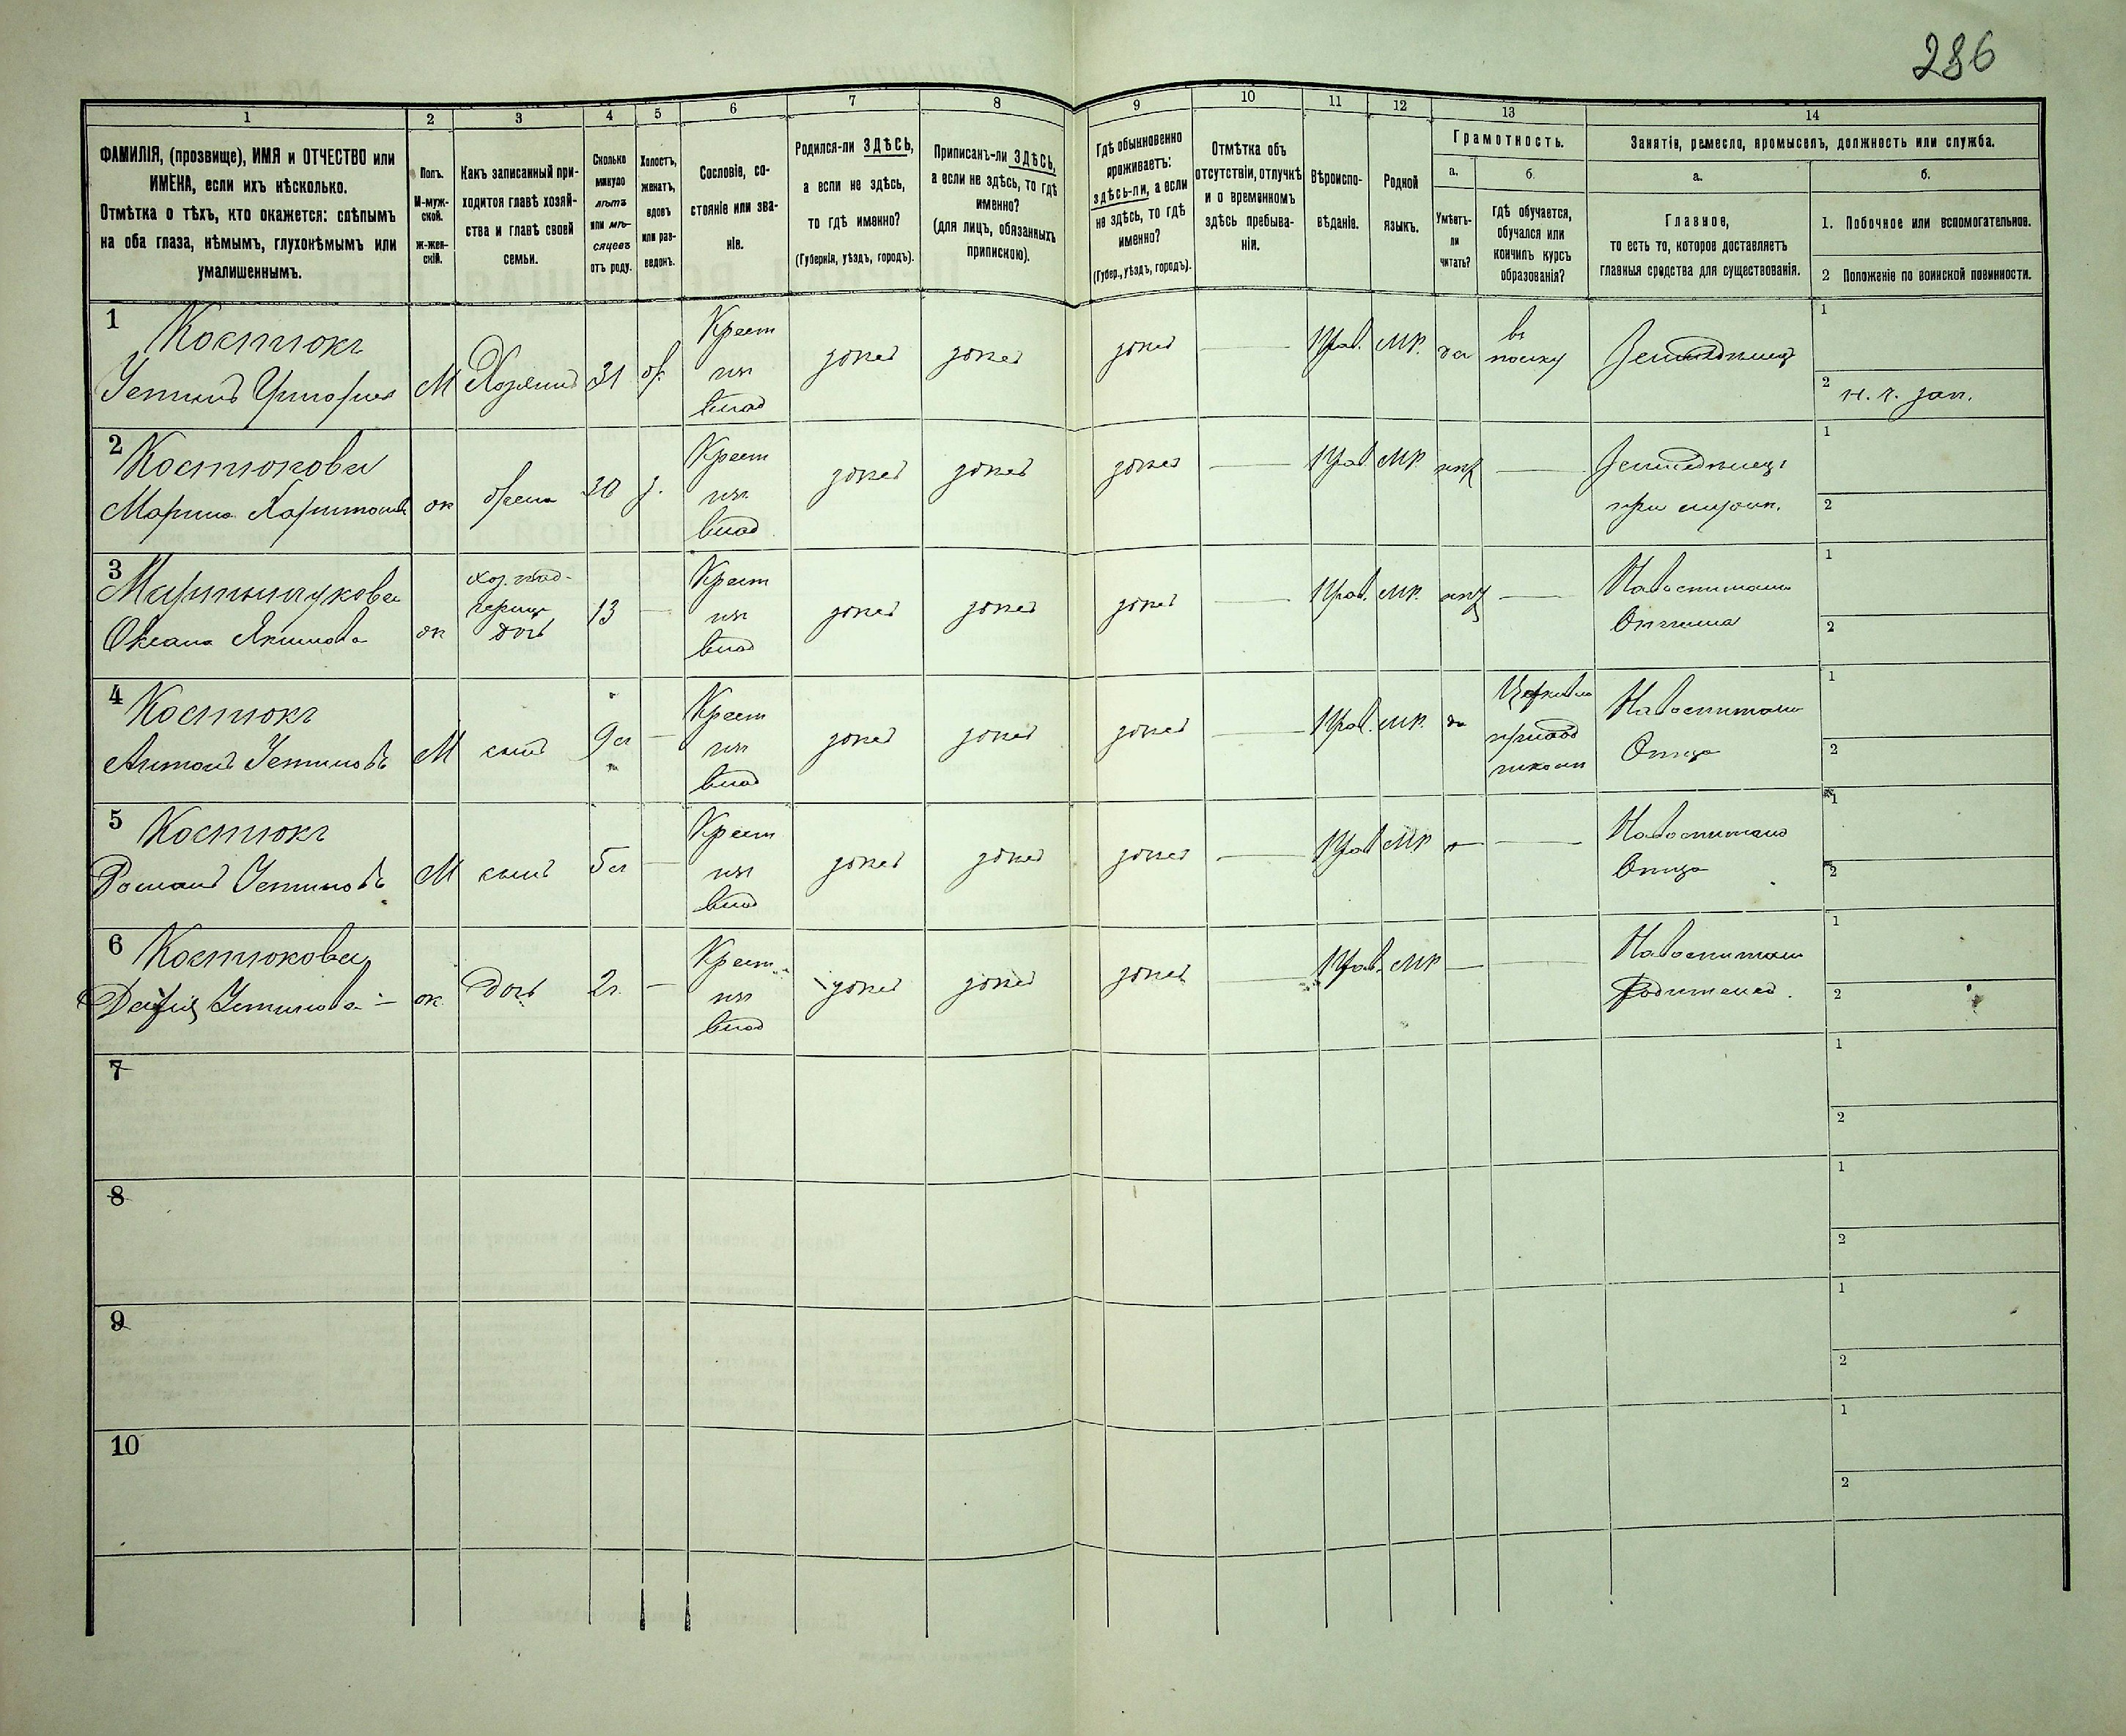 286
1 2 3 4 5 6 7 8 9 10 11 12 13 14
ФАМИЛІЯ, (прозвище), ИМЯ и ОТЧЕСТВО или
ИМЕНА, если ихъ нѣсколько.
Отмѣтка о тѣхъ, кто окажется: слѣпымъ
на оба глаза, нѣмымъ, глухонѣмымъ или
умалишеннымъ.
Полъ.
М-муж-
ской.
Ж-жен-
скій.
Какъ записанный при-
ходится главѣ хозяй-
ства и главѣ своей
семьи.
Сколько
минуло
лѣтъ
или мѣ-
сяцевъ
отъ роду.
Холостъ,
женатъ,
вдовъ
или раз-
веденъ.
Сословіе, со-
стояніе или зва-
ніе.
Родился-ли ЗДѢСЬ,
а если не здѣсь,
то гдѣ именно?
(Губернія, уѣздъ, городъ).
Приписанъ-ли ЗДѢСЬ,
а если не здѣсь, то гдѣ
именно?
(для лицъ, обязанныхъ
припискою).
Гдѣ обыкновенно
проживаетъ:
здѣсь-ли, а если
не здѣсь, то гдѣ
именно?
(Губер., уѣздъ, городъ).
Отмѣтка объ
отсутствіи, отлучкѣ
и о временномъ
здѣсь пребыва-
ніи.
Вѣроиспо-
вѣданіе.
Родной
языкъ.
Грамотность.
а.
Умѣетъ-
ли
читать?
б.
Гдѣ обучается,
обучался или
кончилъ курсъ
образованія?
Занятіе, ремесло, промыселъ, должность или служба.
а.
Главное,
то есть то, которое доставляетъ
главныя средства для существованія.
б.
1. Побочное или вспомогательное.
2 Положеніе по воинской повинности.
1 Костюкъ
Устинъ Григорьев М Хозяинъ 31 Крест
изъ
влад здѣсь здѣсь здѣсь Прав. мр. да въ
полку Земледелец 1
2 н. ч. зап.
2 Костюкова
Марина Харитонова ж жена 30 з. Крест
изъ
влад здѣсь здѣсь здѣсь Прав. мр. Земледелец 1
при 2
3 Мартынчукова
Оксана Якимова ж хоз. пад-
черица
дочь 13 Крест
изъ
влад здѣсь здѣсь здѣсь Прав. мр. На воспитании 1
Отчима 2
4 Костюкъ
Антонъ Устиновъ М сынъ 9 л Крест
изъ
влад здѣсь здѣсь здѣсь Прав. мр. да Церковно
приход
школы На воспитании 1
Отца 2
5 Костюкъ
Романъ Устиновъ М сынъ 5 л Крест
изъ
влад здѣсь здѣсь здѣсь Прав мр На воспитании 1
Отца 2
6 Костюкова
Устинова ж дочь 2 г. Крест
изъ
влад здѣсь здѣсь здѣсь Прав. мр На воспитании 1
Родителей. 2
7 1
2
8 1
2
9 1
2
10 1
2